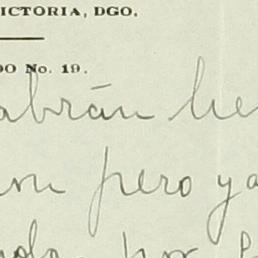 ICTORIA, DGO.
DO No. 19.
abrán he
on pero ya
por